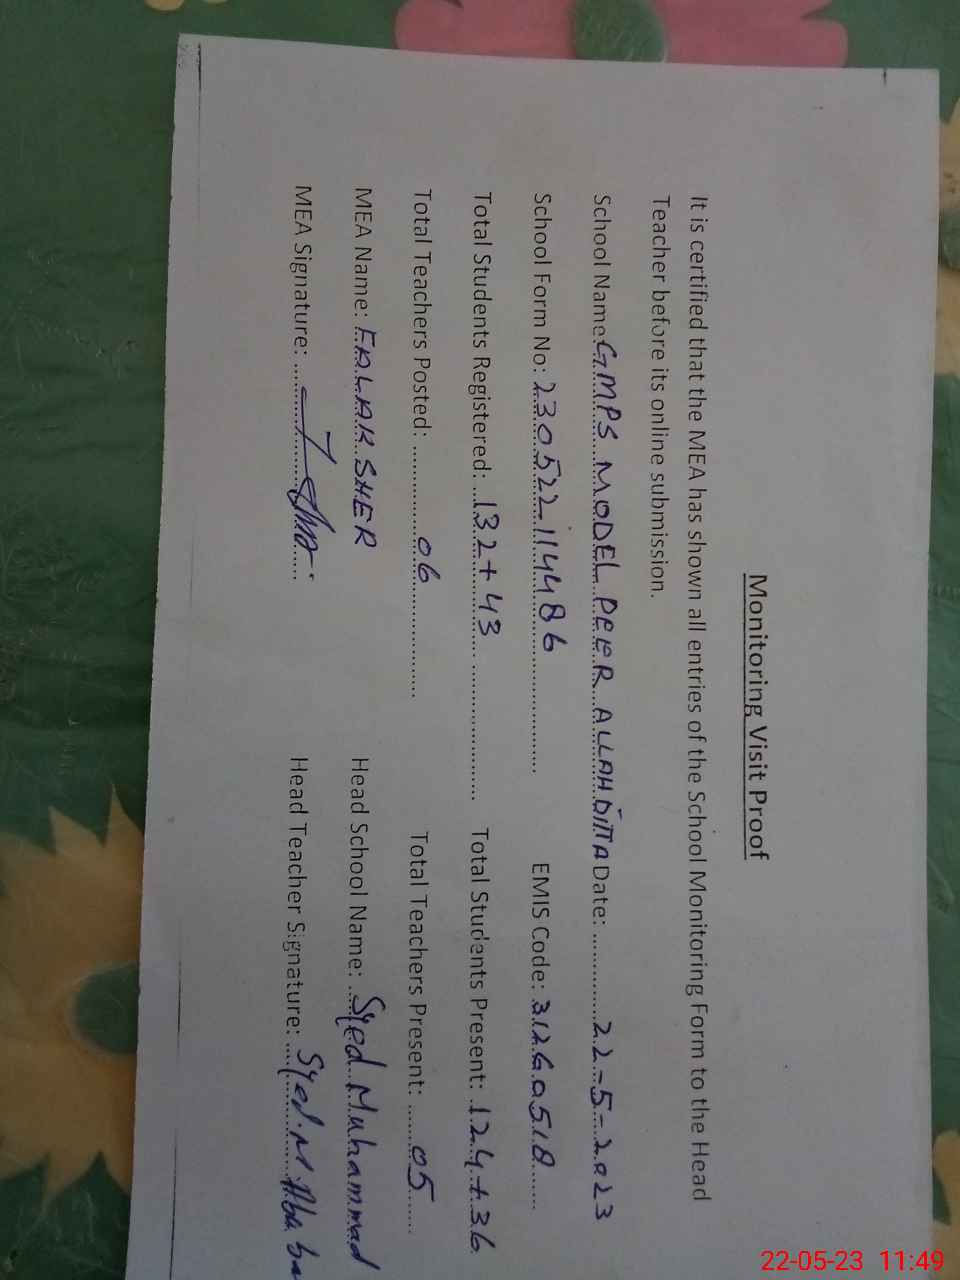 Monitoring Visit Proof
It is certified that the MEA has shown all entries of the School Monitoring Form to the Head
Teacher before its online submission.
School Name: GMPS MODEL PEER ALLAH DITTA Date: ............ 22-5-2023
School Form No: 230522-114486 EMIS Code: 31260518
Total Students Registered: 132+43 Total Students Present: 124+36
Total Teachers Posted: 06 Total Teachers Present: 05
MEA Name: SHER Head School Name: Syed Muhammad
MEA Signature: Head Teacher Signature: Syed M
22-05-23 11:49